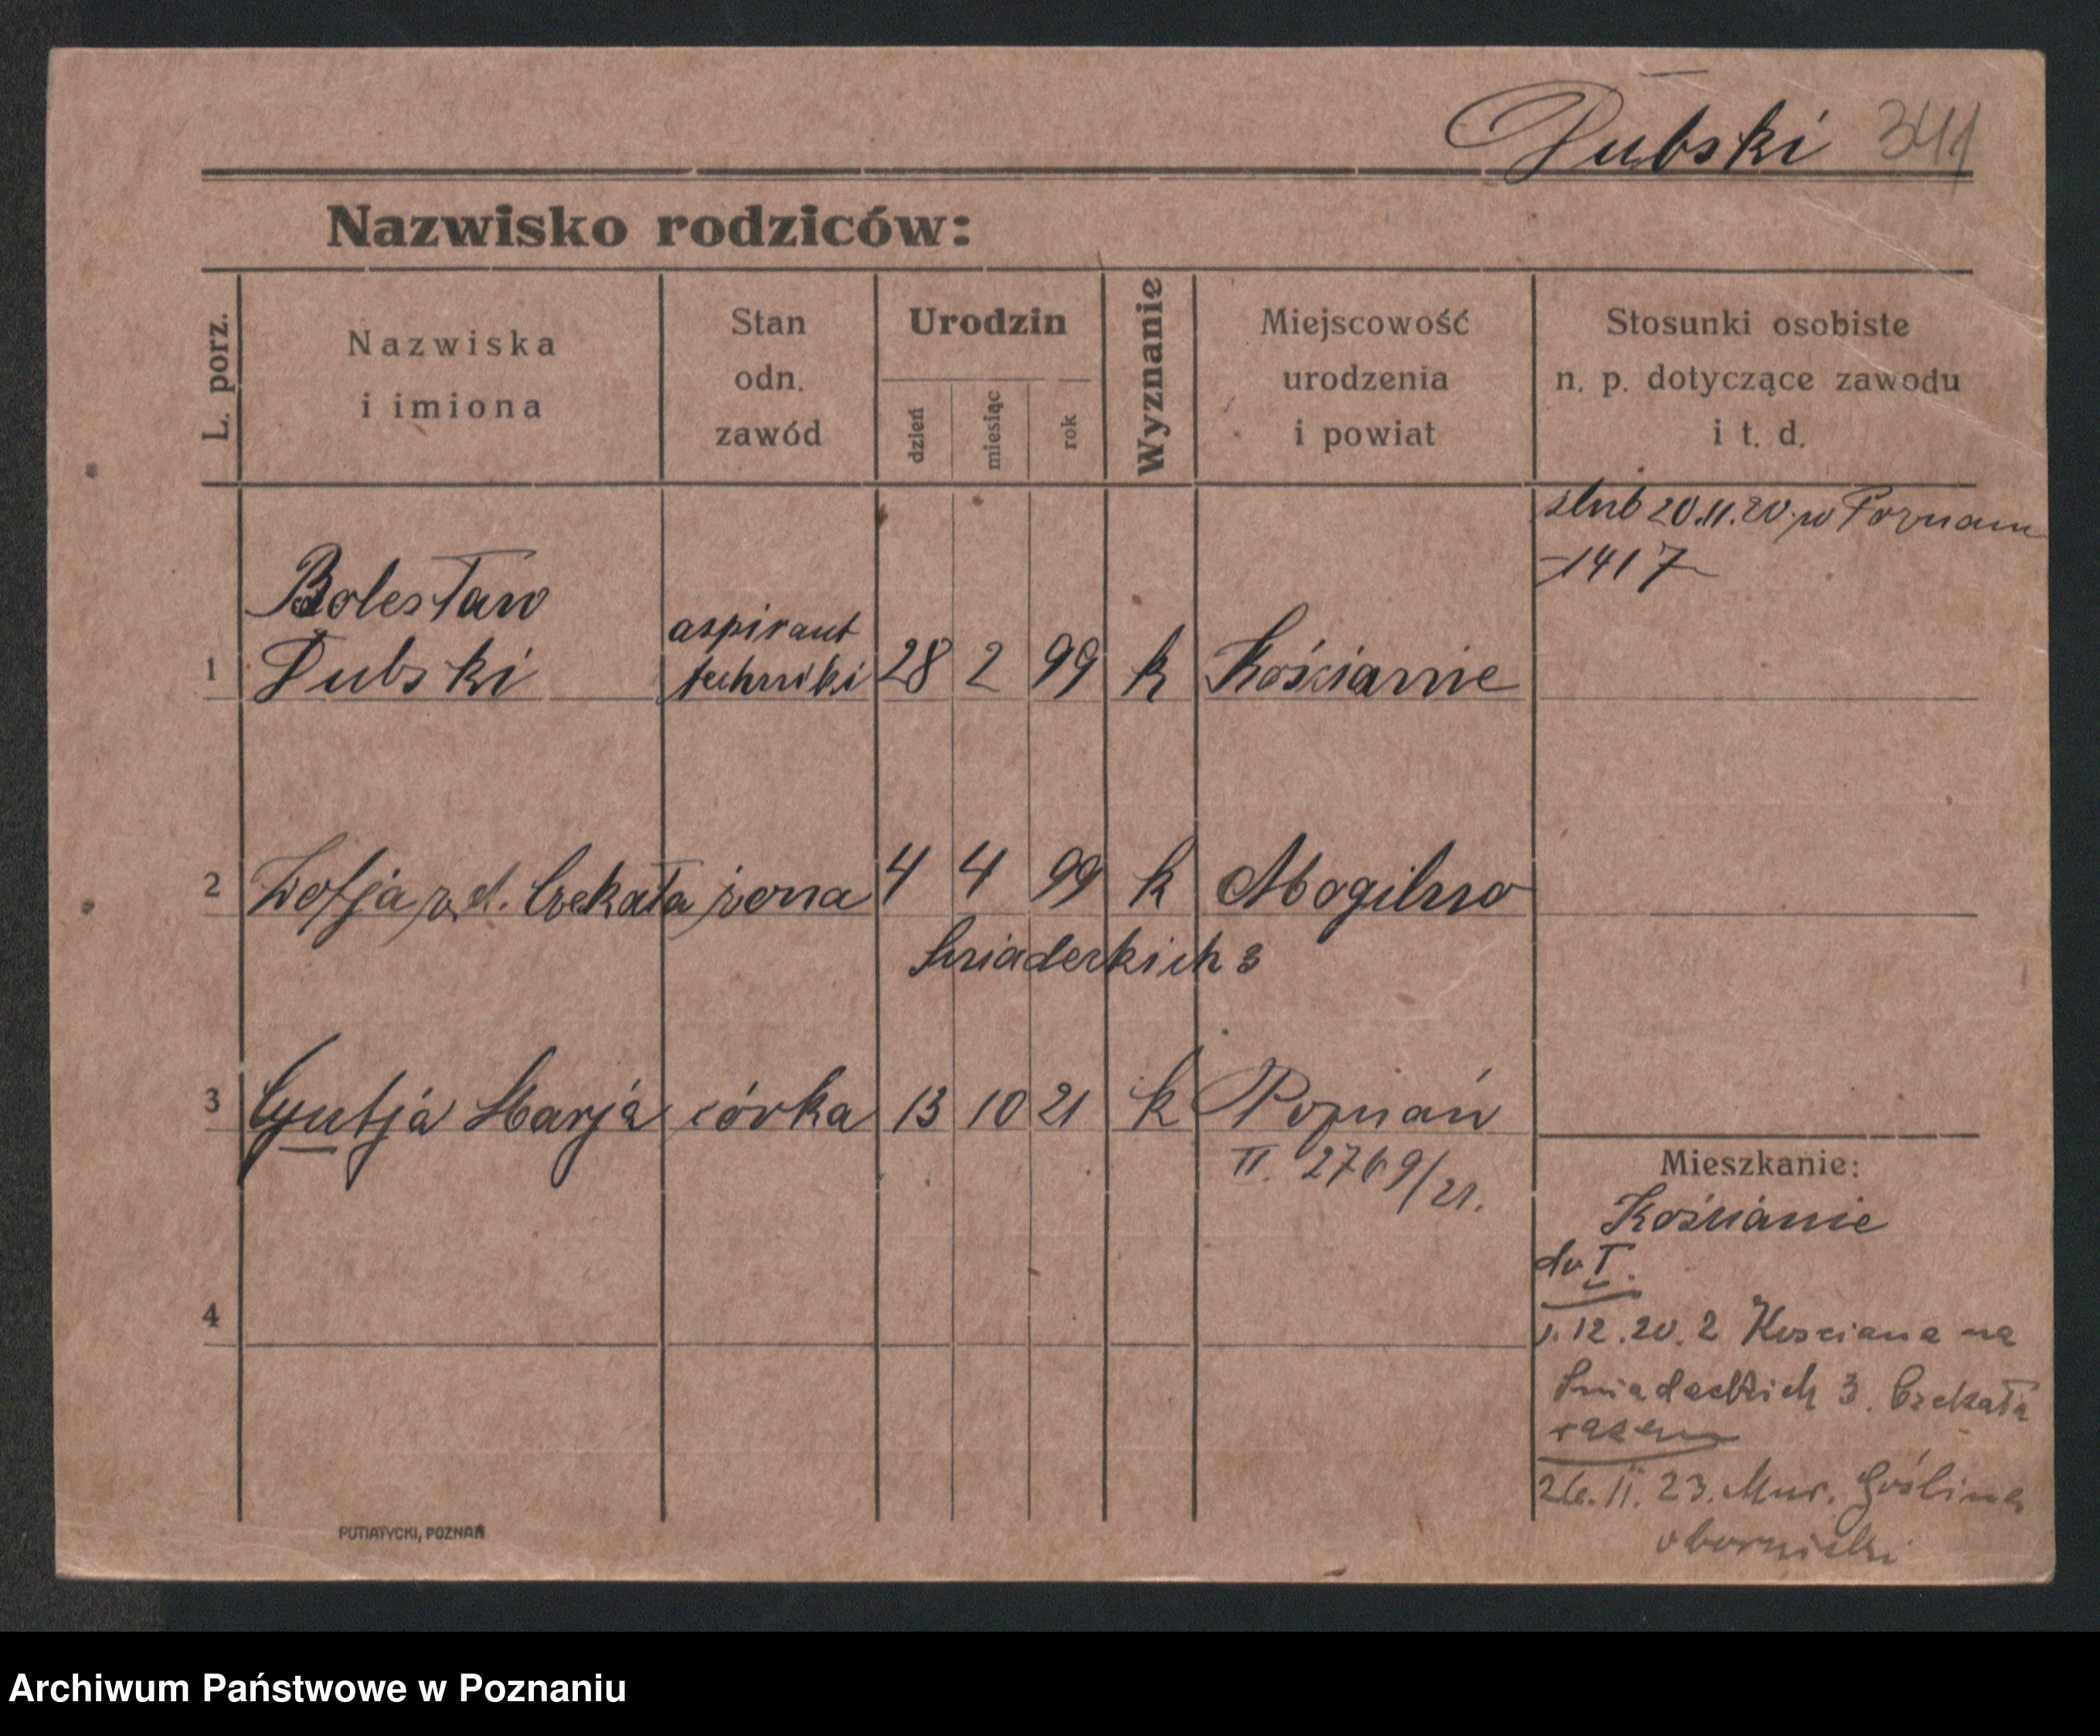 Dubski 341
Nazwisko rodziców:
L. porz.
Nazwiska
i imiona
Stan
odn.
zawód
Urodzin
dzień
miesiąc
rok
Wyznanie
Miejscowość
urodzenia
i powiat
Stosunki osobiste
n. p. dotyczące zawodu
i t. d.
ślub 20.11.20 w Poznaniu
1417
Bolesław
1 Dubski aspirant techniki 28 2 99 k Kościanie
2 Zofja z d. Czekała żona 4 4 99 k Mogilno
Śniadeckich 3
3 Marja córka 13 10 21 k Poznań
II. 2769/21.
Mieszkanie:
Kościanie
do I.
1.12.20. z Kosciana na
Śniadeckich 3. Czekała
razem
26.II.23. Mur. Goślina
obornicki
4
PUTIATYCKI, POZNAŃ
Archiwum Państwowe w Poznaniu